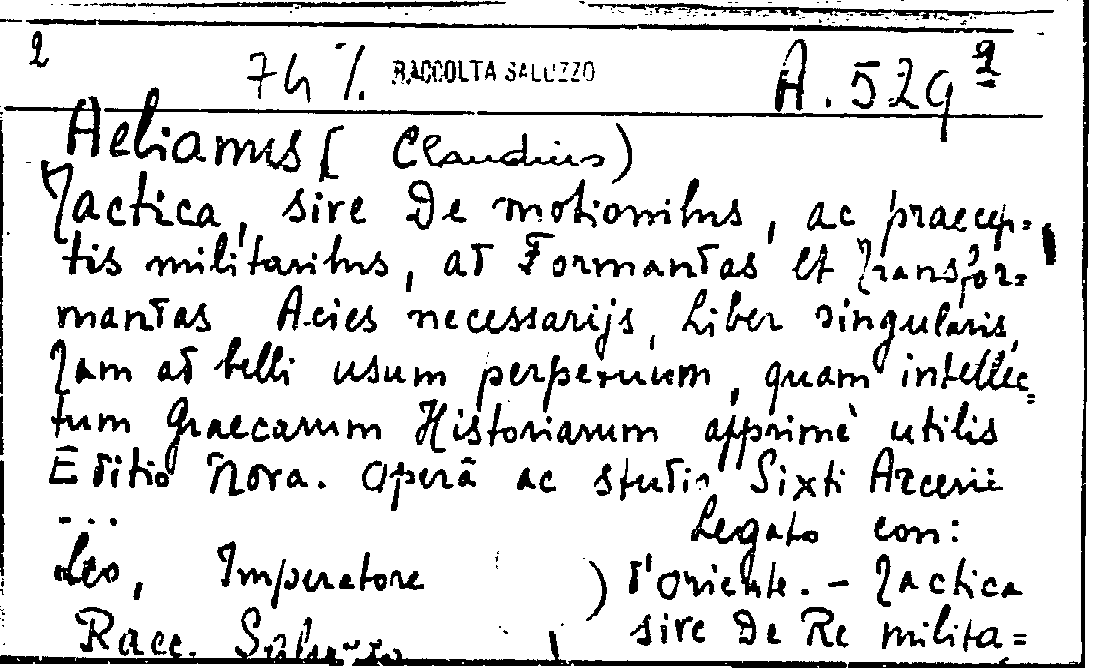 2 74 % RACCOLTA SALUZZO A. 529 2
Aelianus ( Claudius )
Tactica, sive De motionibus, ac praecep=
tis militaribus, ad Formandas et Transfor=
mandas Acies necessarijs, Liber singularis,
Tam ad belli usum perpetuum, quam intellec=
tum Graecarum Historiarum apprimè utilis
Editio Nova. Operâ ac studio Sixti Arcerii
... Legato con:
Leo, Imperatore ) d'Oriente. - Tactica
Racc. Saluzzo sive De Re milita=